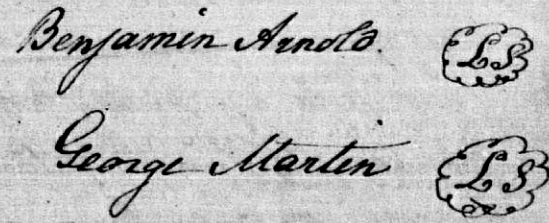 Benjamin Arnold. LS
George Martin LS